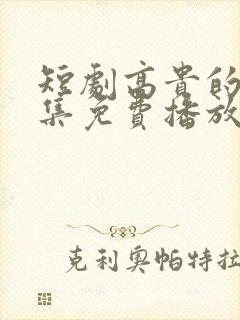 短剧高贵的
集免费播放
克利奥帕特拉